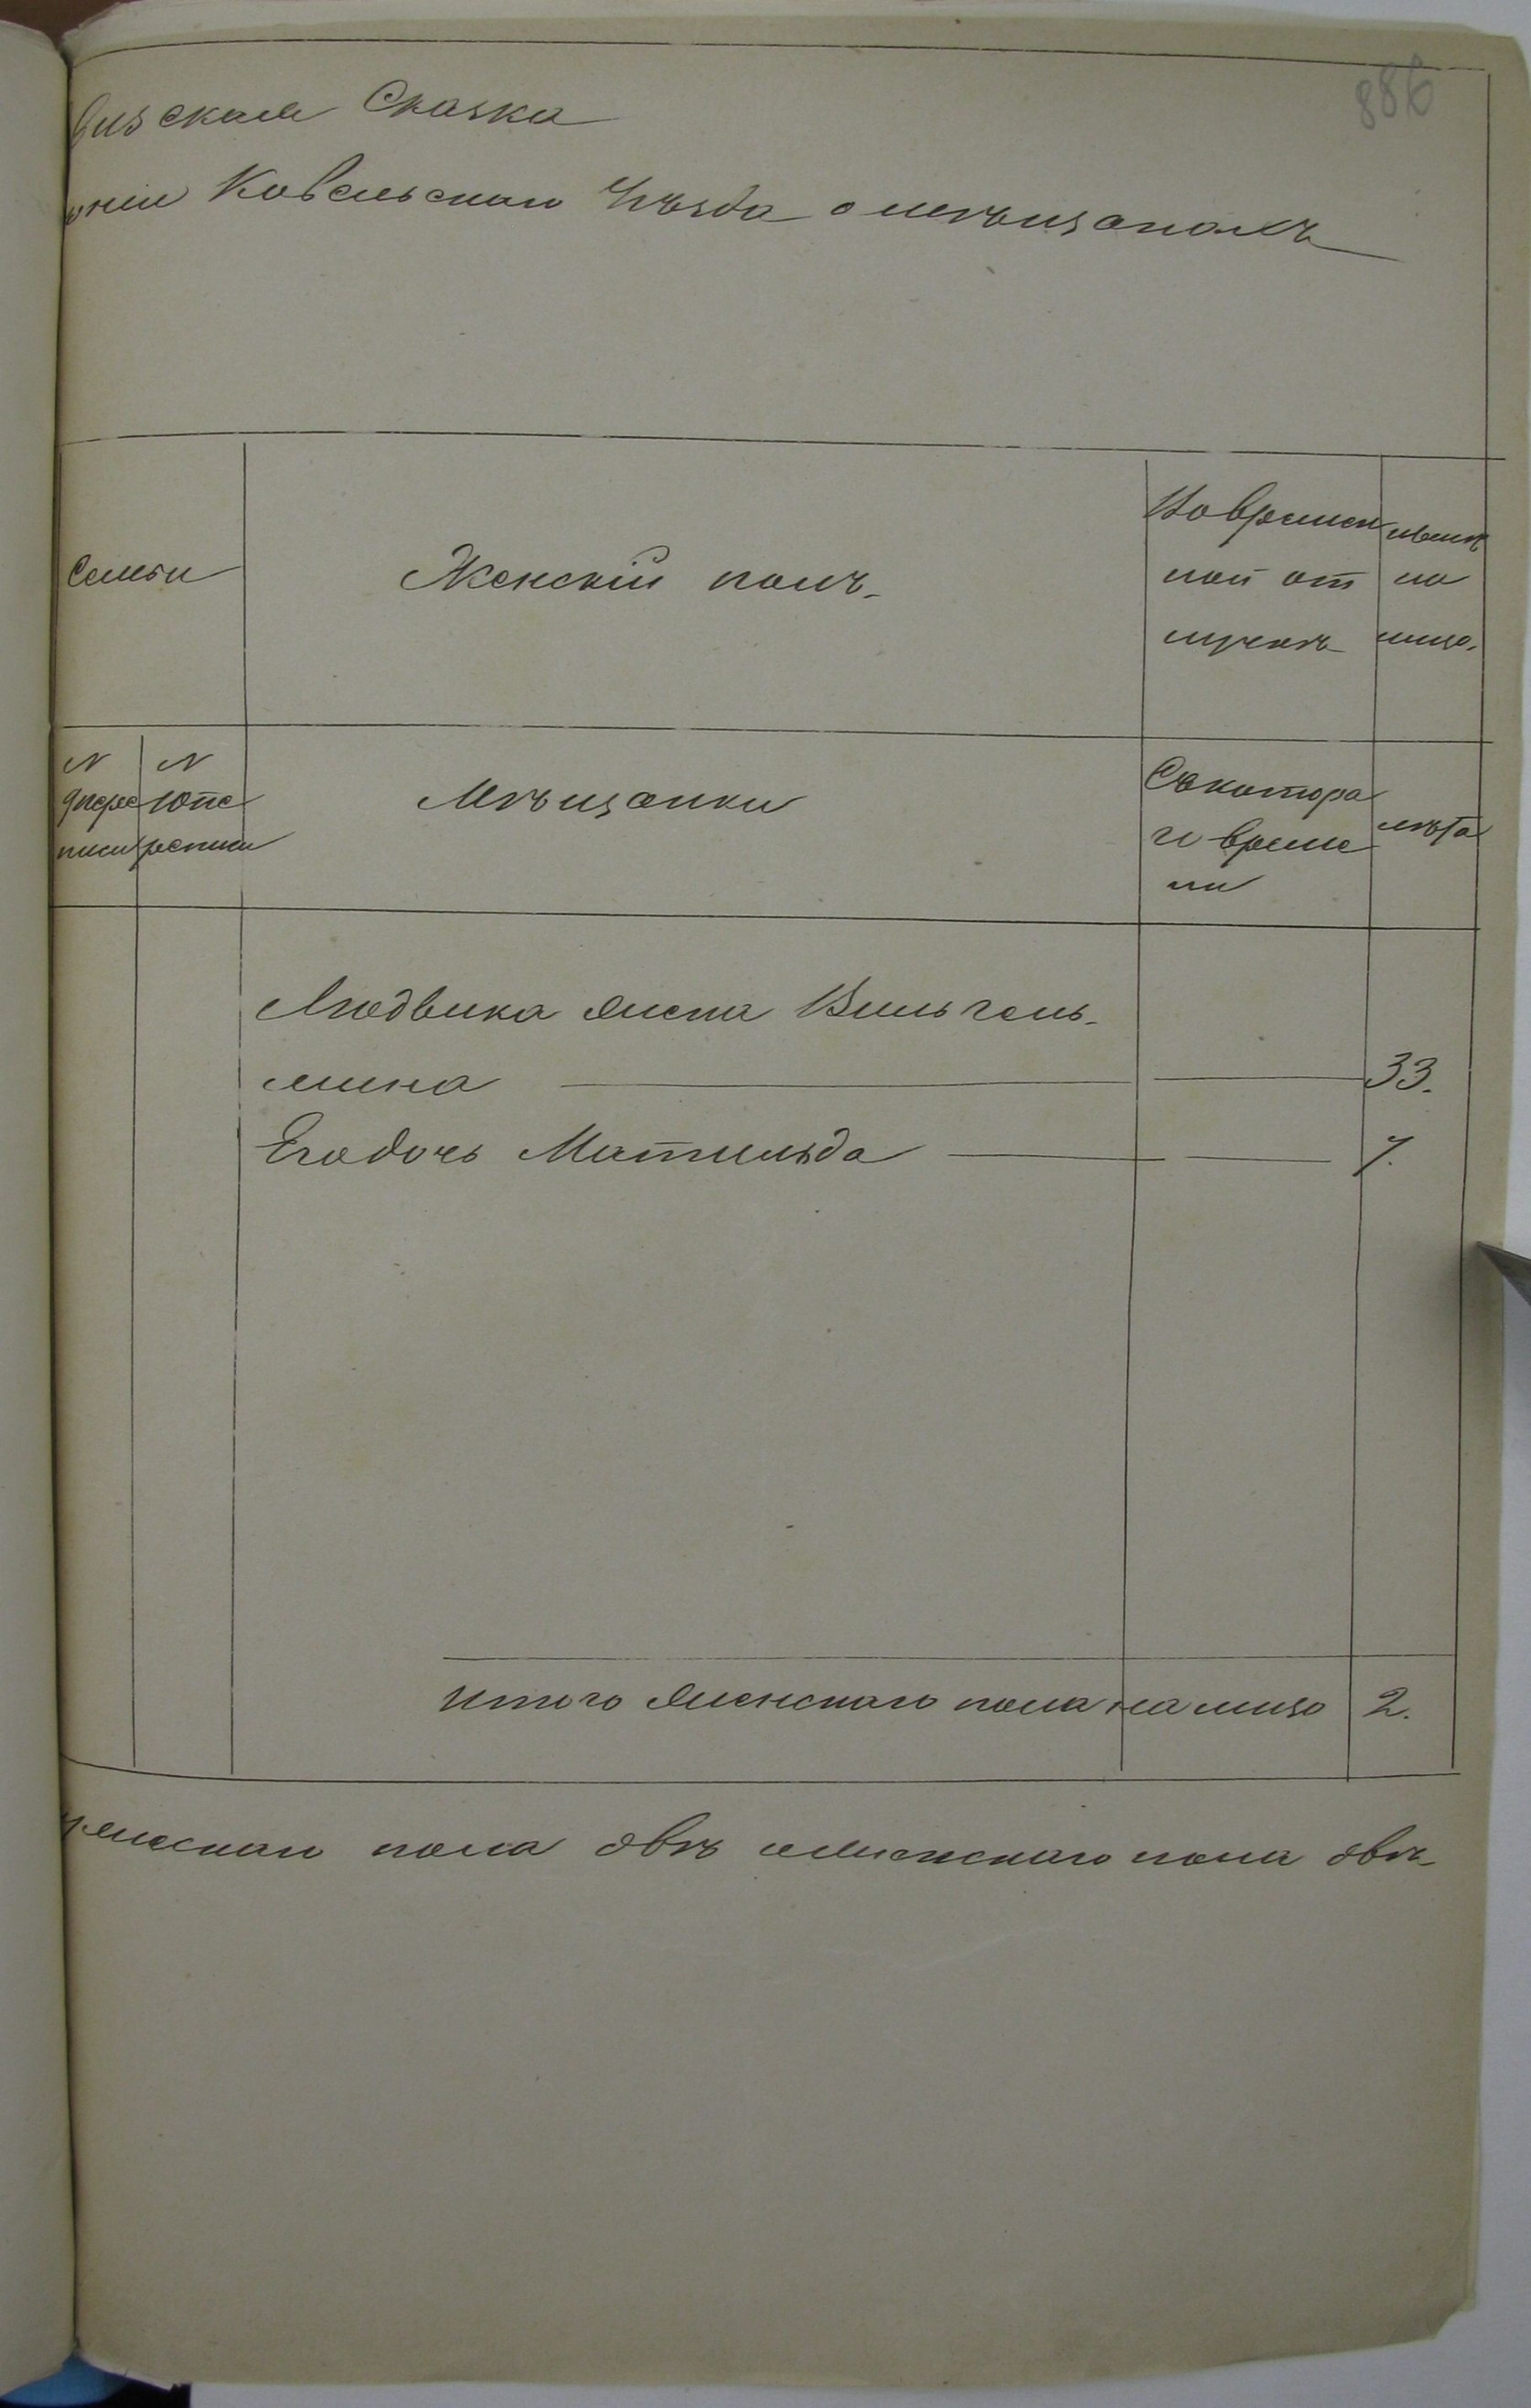 886
визская Сказка
рніи Ковельскаго Уѣзда о мѣщанахъ
Семьи
Женскій полъ.
Во времен
ной от
лучкѣ
нынѣ
на
лицо.
N
9 пере
писи
N
10 пе
реписи
Мѣщанки
Съ котора
го време
ни
лѣта
Людвика жена Вильгель-
мина 33.
Его дочь Матильда 7.
Итого женскаго пола на лицо 2.
мужескаго пола двѣ и женскаго пола двѣ